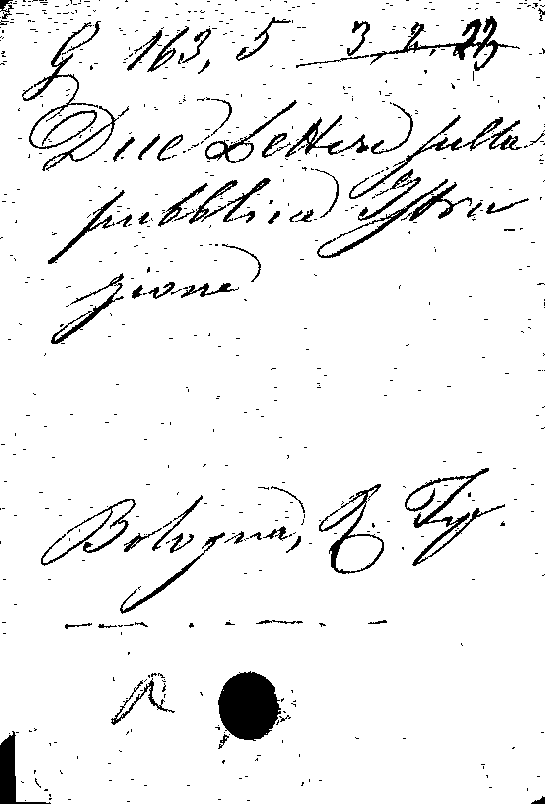 G. 163, 5 3, 2, 23
Due Lettere sulla
pubblica Istru
zione
Bologna, R. Tip.
R